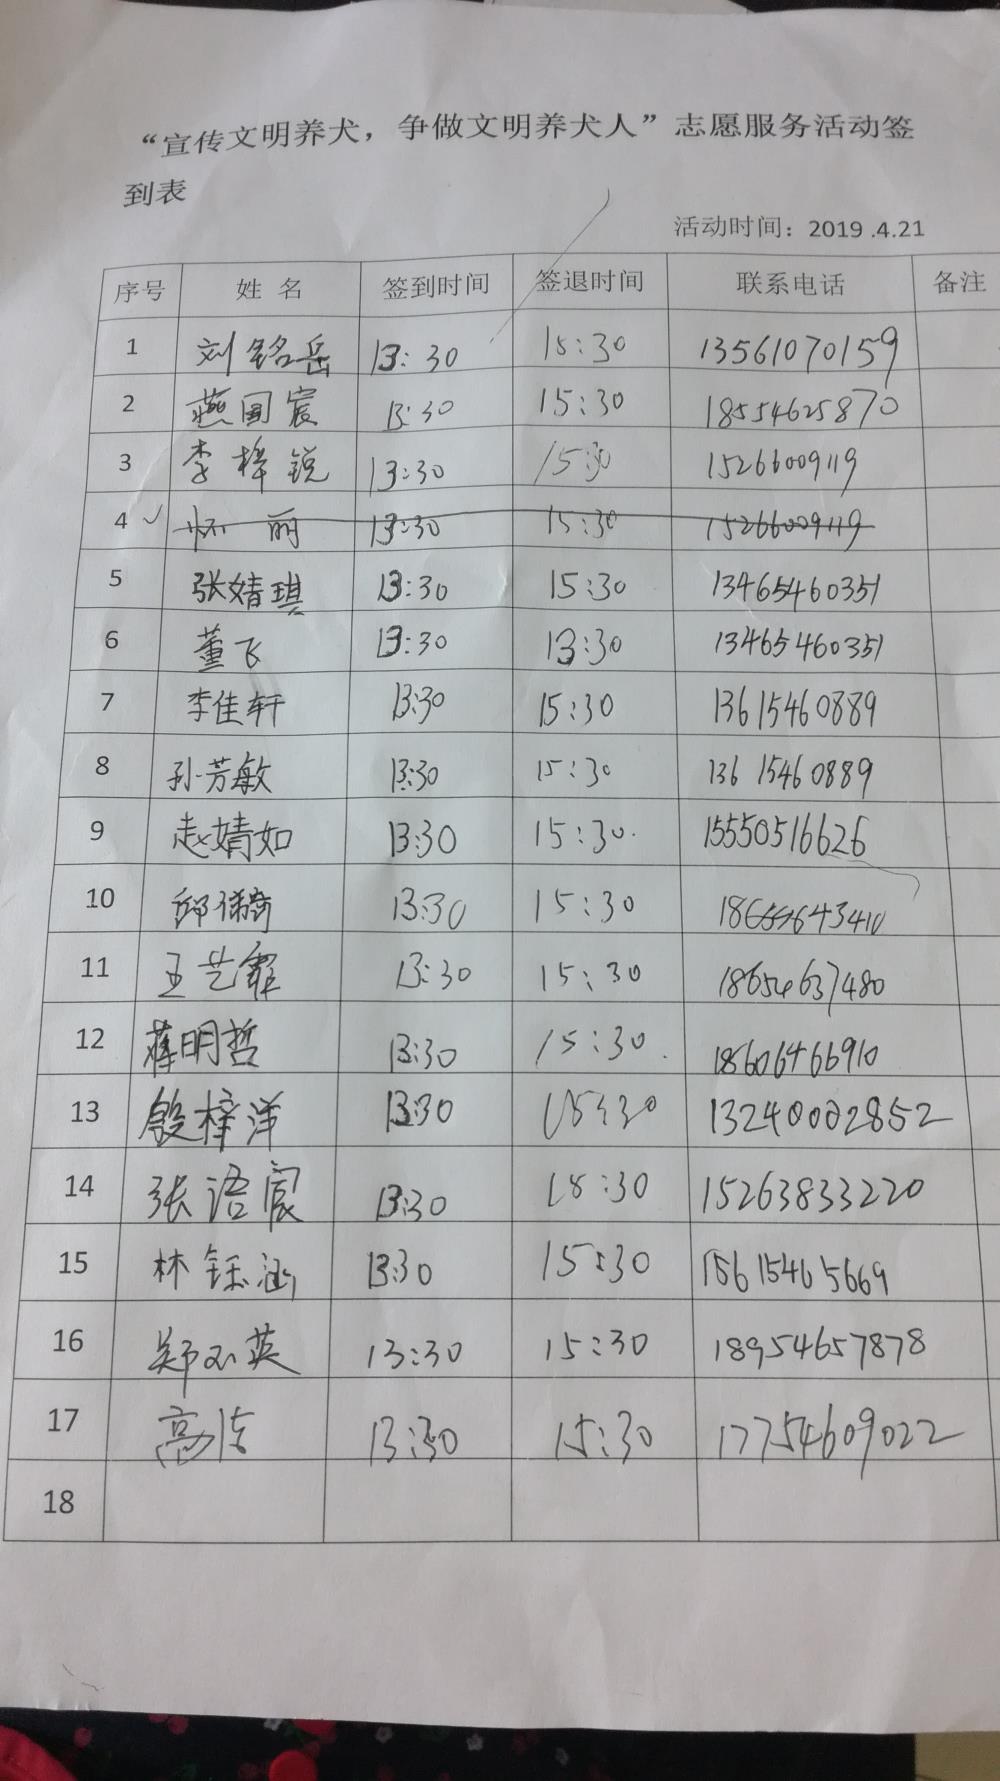 “宣传文明养犬，争做文明养犬人”志愿服务活动签
到表
活动时间：2019 .4.21
序号 姓 名 签到时间 签退时间 联系电话 备注
1 刘铭岳 13:30 15:30 13561070159
2 燕国宸 13:30 15:30 18554625870
3 李梓锐 13:30 15:30 15266009119
4 怀丽 13:30 15:30 15266009119
5 张婧琪 13:30 15:30 13465460351
6 董飞 13:30 13:30 13465460351
7 李佳轩 13:30 15:30 13615460889
8 孙芳敏 13:30 15:30 13615460889
9 赵婧如 13:30 15:30. 15550516626
10 13:30 15:30
11 王艺霏 13:30 15:30 18654637480
12 蒋明哲 13:30 15:30. 18606466910
13 殷梓洋 13:30 15:30 13240002852
14 张语宸 13:30 15:30 15263833220
15 林钰涵 13:30 15:30 15615465669
16 郑英 13:30 15:30 18954657878
17 高洁 13:30 15:30 17754609022
18